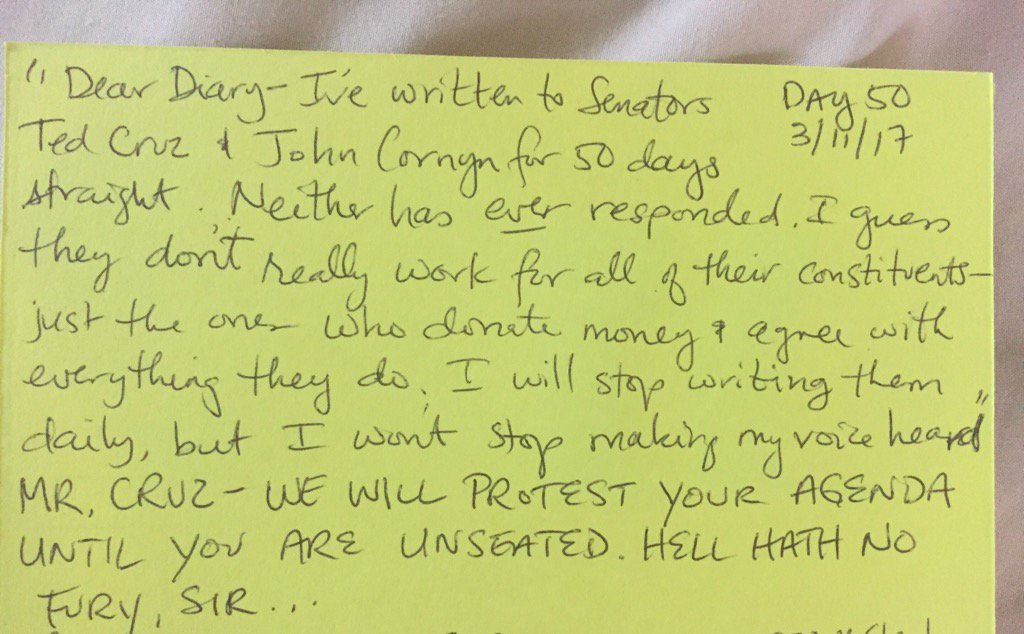 "Dear Diary - I've written to Senators DAY 50
Ted Cruz & John Cornyn for 50 days 3/11/17
straight. Neither has ever responded. I guess
they don't really work for all of their constituents-
just the ones who donate money & agree with
everything they do. I will stop writing them
daily, but I won't stop making my voice heard"
MR. CRUZ - WE WILL PROTEST YOUR AGENDA
UNTIL YOU ARE UNSEATED. HELL HATH NO
FURY, SIR...